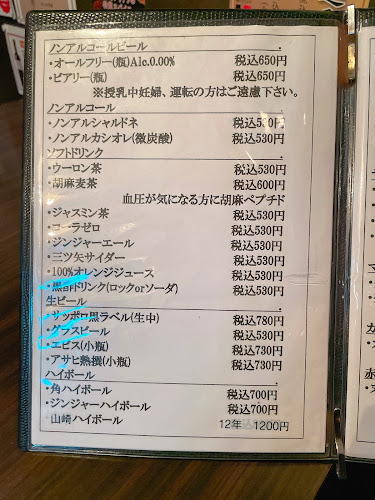 ノンアルコールビール
・オールフリー(瓶)Alc.0.00% 税込650円
・ビアリー(瓶) 税込650円
※授乳中妊婦、運転の方はご遠慮下さい。
ノンアルコール
・ノンアルシャルドネ 税込530円
・ノンアルカシオレ(微炭酸) 税込530円
ソフトドリンク
・ウーロン茶 税込530円
・胡麻麦茶 税込600円
血圧が気になる方に胡麻ペプチド
・ジャスミン茶 税込530円
・コーラゼロ 税込530円
・ジンジャーエール 税込530円
・三ツ矢サイダー 税込530円
・100%オレンジジュース 税込530円
・黒酢ドリンク(ロックorソーダ) 税込530円
生ビール
・サッポロ黒ラベル(生中) 税込780円
・グラスビール 税込530円
・エビス(小瓶) 税込730円
・アサヒ熟撰(小瓶) 税込730円
ハイボール
・角ハイボール 税込700円
・ジンジャーハイボール 税込700円
・山崎ハイボール 12年 1200円